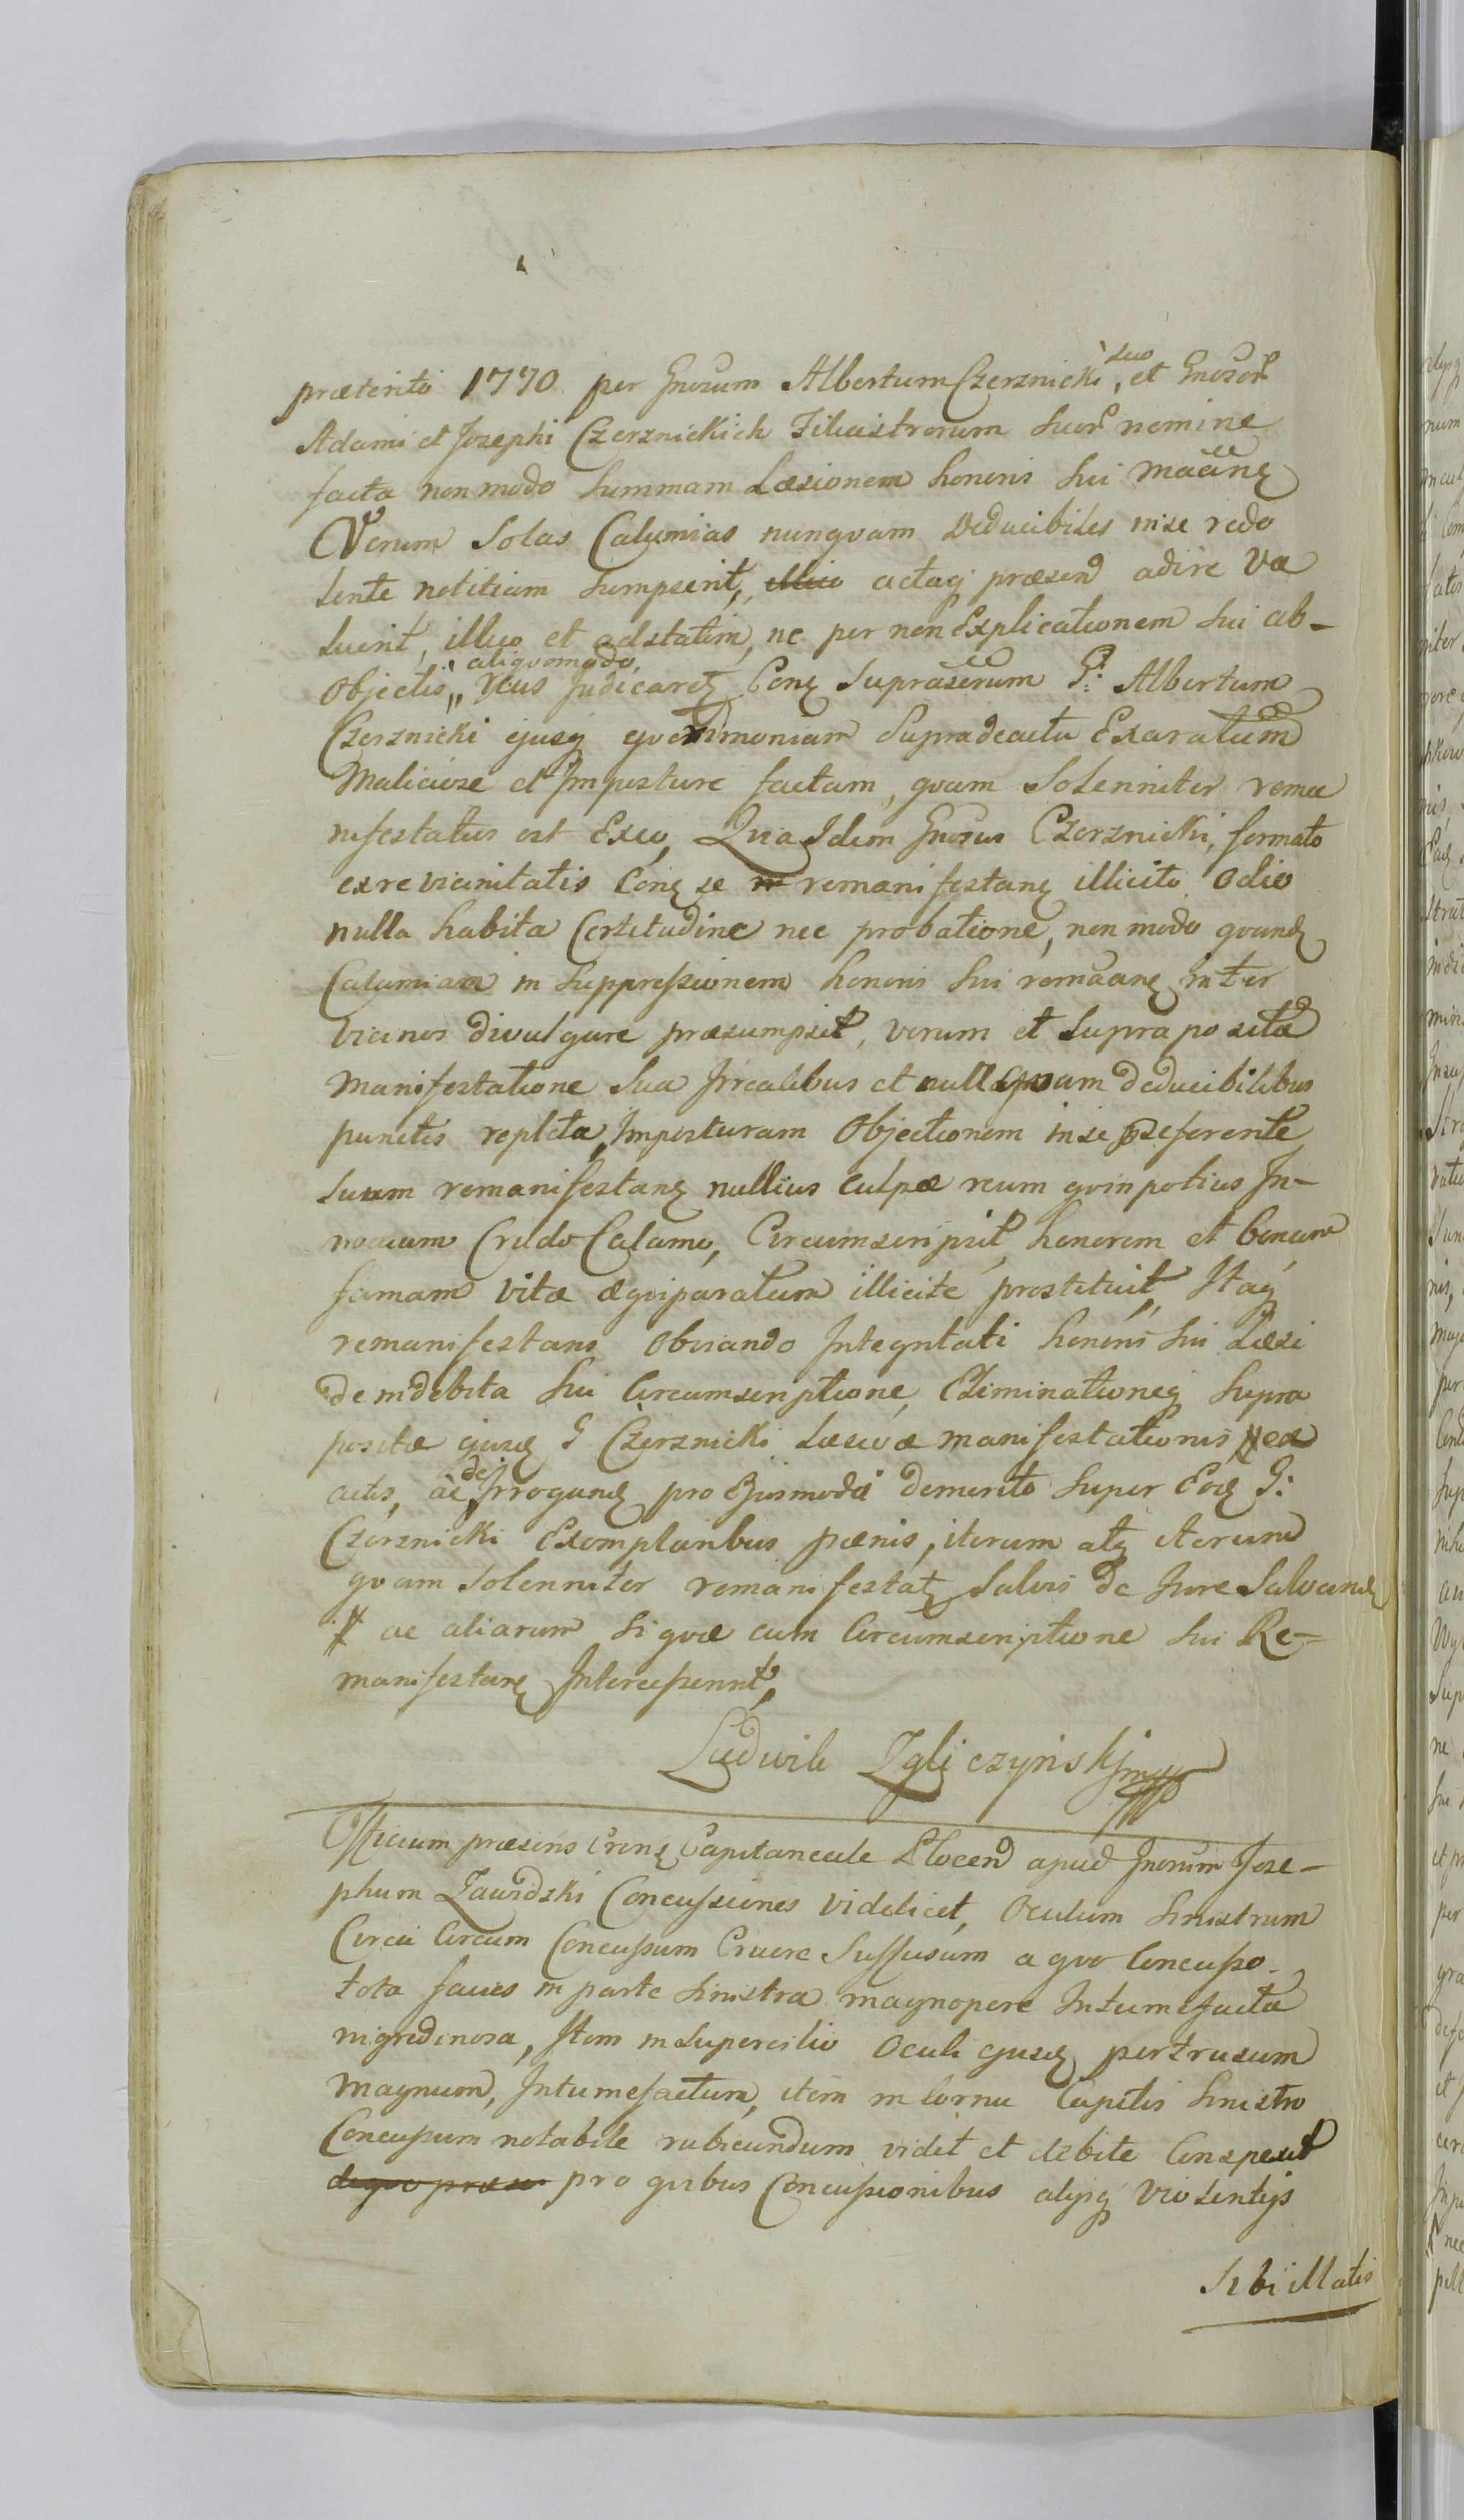 præterito 1770 per Gnosum Albertum Czerznicki, suo et Gnosor
Adami et Josephi Czerznickich Filiastrorum suor nomine
facta non modo summam Læsionem honoris sui
Verum Solas Calumias nunqvam Deducibiles in se redo
lente notitiam sumpserit, illico actaq præsend adire va
luerit, illico et adstatim, ne per non Explicationem sui ab-
objectis, aliqvomodo reus Judicaret Conę Suprascrum G: Albertum
Czerznicki ejusq qverimoniam Supradeactu Exaratam
Maliciose et Imposture factam, qvam Solenniter rema
nifestatus est Exeo, Quia Idem Gnosus Czerznicki, formato
ex re vicinitatis Conę se remanifestanę illicito odio
nulla habita Certitudine nec probatione, non modo qvandę
Calumiam in suppressionem honoris sui inter
vicinos divulgare præsumpsit, verum et supra posita
Manifestatione Sua Irrealibus et deducibilibus
punctis repleta, Imposturam Objectionem in se præseferente
suum remanifestanę nullius culpæ reum qvin potius In-
nocuum Credo Calamo, Circumscripsit, honorem et bonam
famam vitæ æqviparatum illicite prostituit, Itaq
remanifestans obviando Integritati honoris sui Læsi
de indebita sui Circumscriptione, Eliminationeq supra
positæ ejusdę G Czerznicki Læsivæ manifestationis ex
actis, ac de Irrogandę pro Ejusmodi demerito super Eodę G:
Czerznicki Exemplaribus pænis, iterum atq iterum
qvam solenniter remanifestatę Salvis de Jure Salvandę
ac aliarum si qvæ cum Circumscriptione sui Re-
manifestarę Intercesserint,
Ludwik Zgliczynski mpp
Officium præsens Crenę Capitaneale Plocend apud Gnosum Jose-
phum Zawidzki Concussiones videlicet, Oculum Sinistrum
Circu Circum Concussum Cruore Suffusum a qvo Concusso
tota facies in parte sinistra magnopere Intumefacta
nigredinosa, Item in supercilio Oculi ejusdę pertrusum
magnum, Intumefactum, item in Cornu Capitis sinistro
Concussum notabile rubicundum vidit et debite Conspexit
de qvo præse pro qvibus Concussionibus alijsq violentijs
Sibi illatis